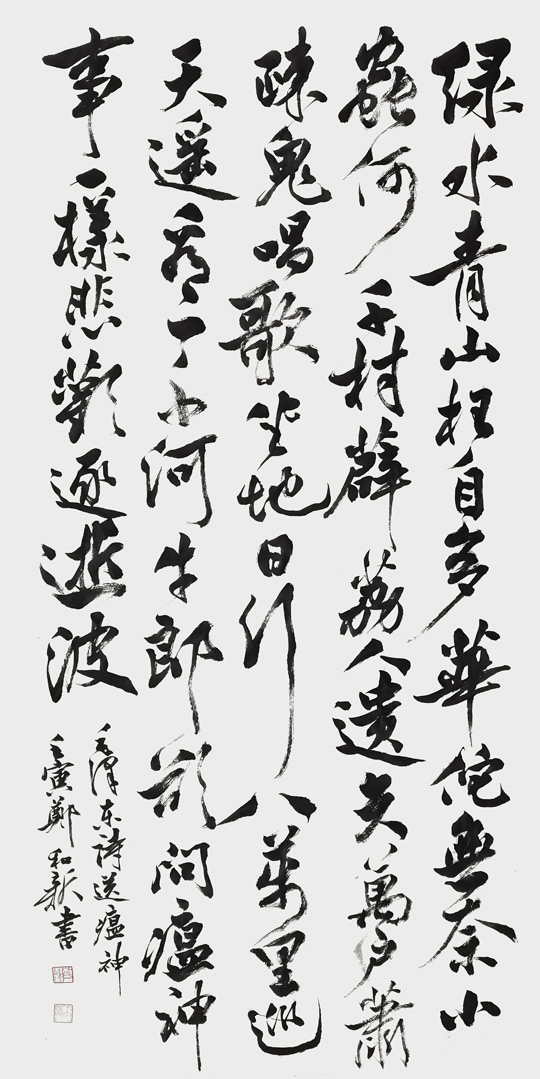 绿水青山枉自多華佗無奈小
蟲何千村薜荔人遺矢萬户蕭
疎鬼唱歌坐地日行八萬里巡
天遥看一千河牛郎欲問瘟神
事一樣悲歡逐逝波
毛澤东詩送瘟神
壬寅鄭和新書